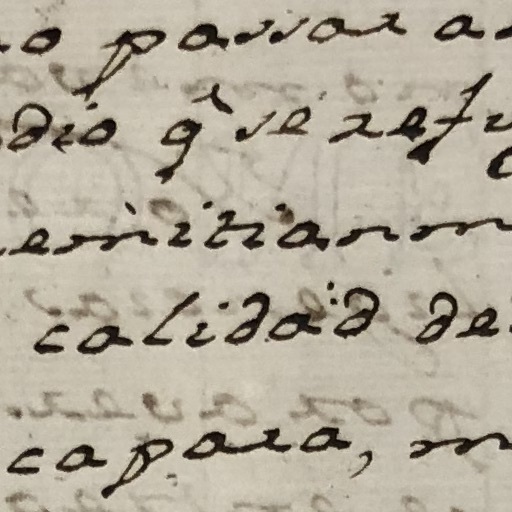 o passar a
dio q̃ se refu
emitiann
calidad de
capara, m